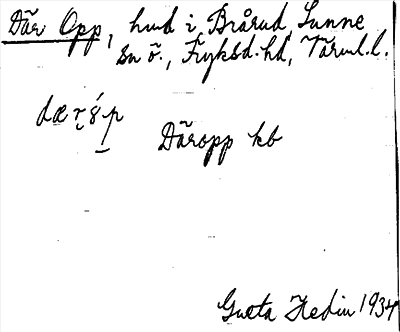 Där Opp, hmd i Brårud, Sunne
sn ö., Fryksd. hd, Värml. l.
Däropp kb
Greta Hedin 1934